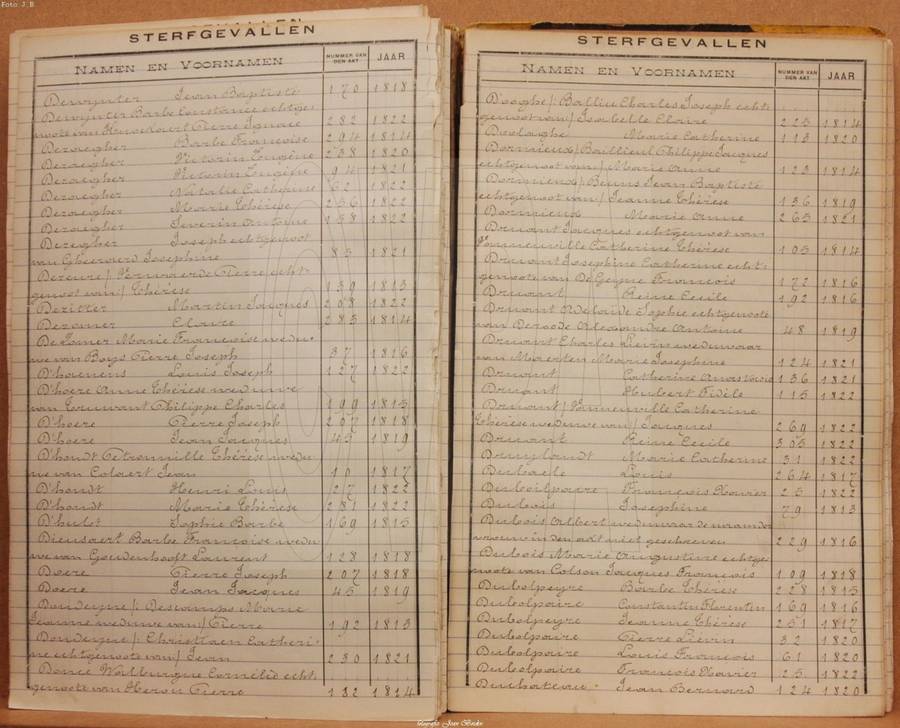 Foto: J. B
STERFGEVALLEN
NAMEN EN VOORNAMEN NUMMER VAN DEN AKT JAAR
Dewynter Jean Baptiste 170 1818
Dewynter Barbe Constance echtge-
noote van Pierre Ignace 282 1822
Dezaegher Barbe Françoise 294 1814
Dezaegher Victorin Eugène 238 1820
Dezaegher Victorin Eugène 94 1821
Dezaegher Natalie Catherine 62 1822
Dezaegher Marie Thérèse 256 1822
Dezaegher Severin Antoine 158 1822
Dezegher Joseph echtgenoot
van Gheeraerd Josephine 85 1821
Dezeure / Pierre echt-
genoot van / Thérèse 139 1813
Dezitter Martin Jacques 208 1822
Dezomer Claire 285 1814
De Zomer Marie Françoise wedu-
we van Boys Pierre Joseph 37 1816
D'haenens Louis Joseph 127 1822
D'hoere Anne Thérèse weduwe
van Truwant Philippe Charles 199 1815
D'hoere Pierre Joseph 207 1818
D'hoere Jean Jacques 45 1819
D'hondt Petronnille Thérèse wedu-
we van Colaert Jean 10 1817
D'hondt Henri Louis 27 1822
D'hondt Marie Thérèse 281 1822
D'hulst Sophie Barbe 169 1815
Dieusaert Barbe Françoise wedu-
we van Goudenhooft Laurent 128 1818
Doere Pierre Joseph 207 1818
Doere Jean Jacques 45 1819
Dondeyne / Descamps Marie
Jeanne weduwe van / Pierre 192 1813
Dondeyne / Christiaen Catheri-
ne echtgenoote van / Jean 230 1821
Donce Walburgue Cornélie echt-
genoote van Herou Pierre 132 1814
STERFGEVALLEN
NAMEN EN VOORNAMEN NUMMER VAN DEN AKT JAAR
Dooghe / Balliu Charles Joseph echt-
genoot van / Isabelle Claire 225 1814
Doolaeghe Marie Catherine 113 1820
Dornieux / Baillieul Philippe Jacques
echtgenoot van / Marie Anne 123 1814
Dorniend / Beuns Jean Baptiste
echtgenoot van / Jeanne Thérèse 136 1819
Dorniend Marie Anne 265 1821
Druant Jacques echtgenoot van
Vanneuville Catherine Thérèse 105 1814
Druant Josephine Catherine echt-
genoote van De Geyne François 172 1816
Druant Reine Cecile 192 1816
Druant Adelaide Sophie echtgenoote
van Deroode Alexandre Antoine 48 1819
Druant Charles Lievin weduwaar
van Maerten Marie Josephine 124 1821
Druant Catherine Anastasie 136 1821
Druant Hubert Fidèle 115 1822
Druant / Vanneuville Catherine
Thérèse weduwe van / Jacques 269 1822
Druant Reine Cecile 303 1822
Druylandt Marie Catherine 31 1822
Dubaele Louis 264 1817
Duboilpaire François Xavier 25 1822
Dubois Josephine 79 1813
Dubois Albert weduwaar de naam der
vrouw in den akt niet geschreven 229 1816
Dubois Marie Augustine echtge-
noote van Colson Jacques François 109 1818
Dubolpeyre Barbe Thérèse 228 1815
Dubolpaire Constantin Florentin 169 1816
Dubolpeyre Jeanne Thérèse 251 1817
Dubolpaire Pierre Lievin 32 1820
Dubolpaire Louis François 61 1820
Dubolpaire François Xavier 25 1822
Duchateau Jean Bernard 124 1820